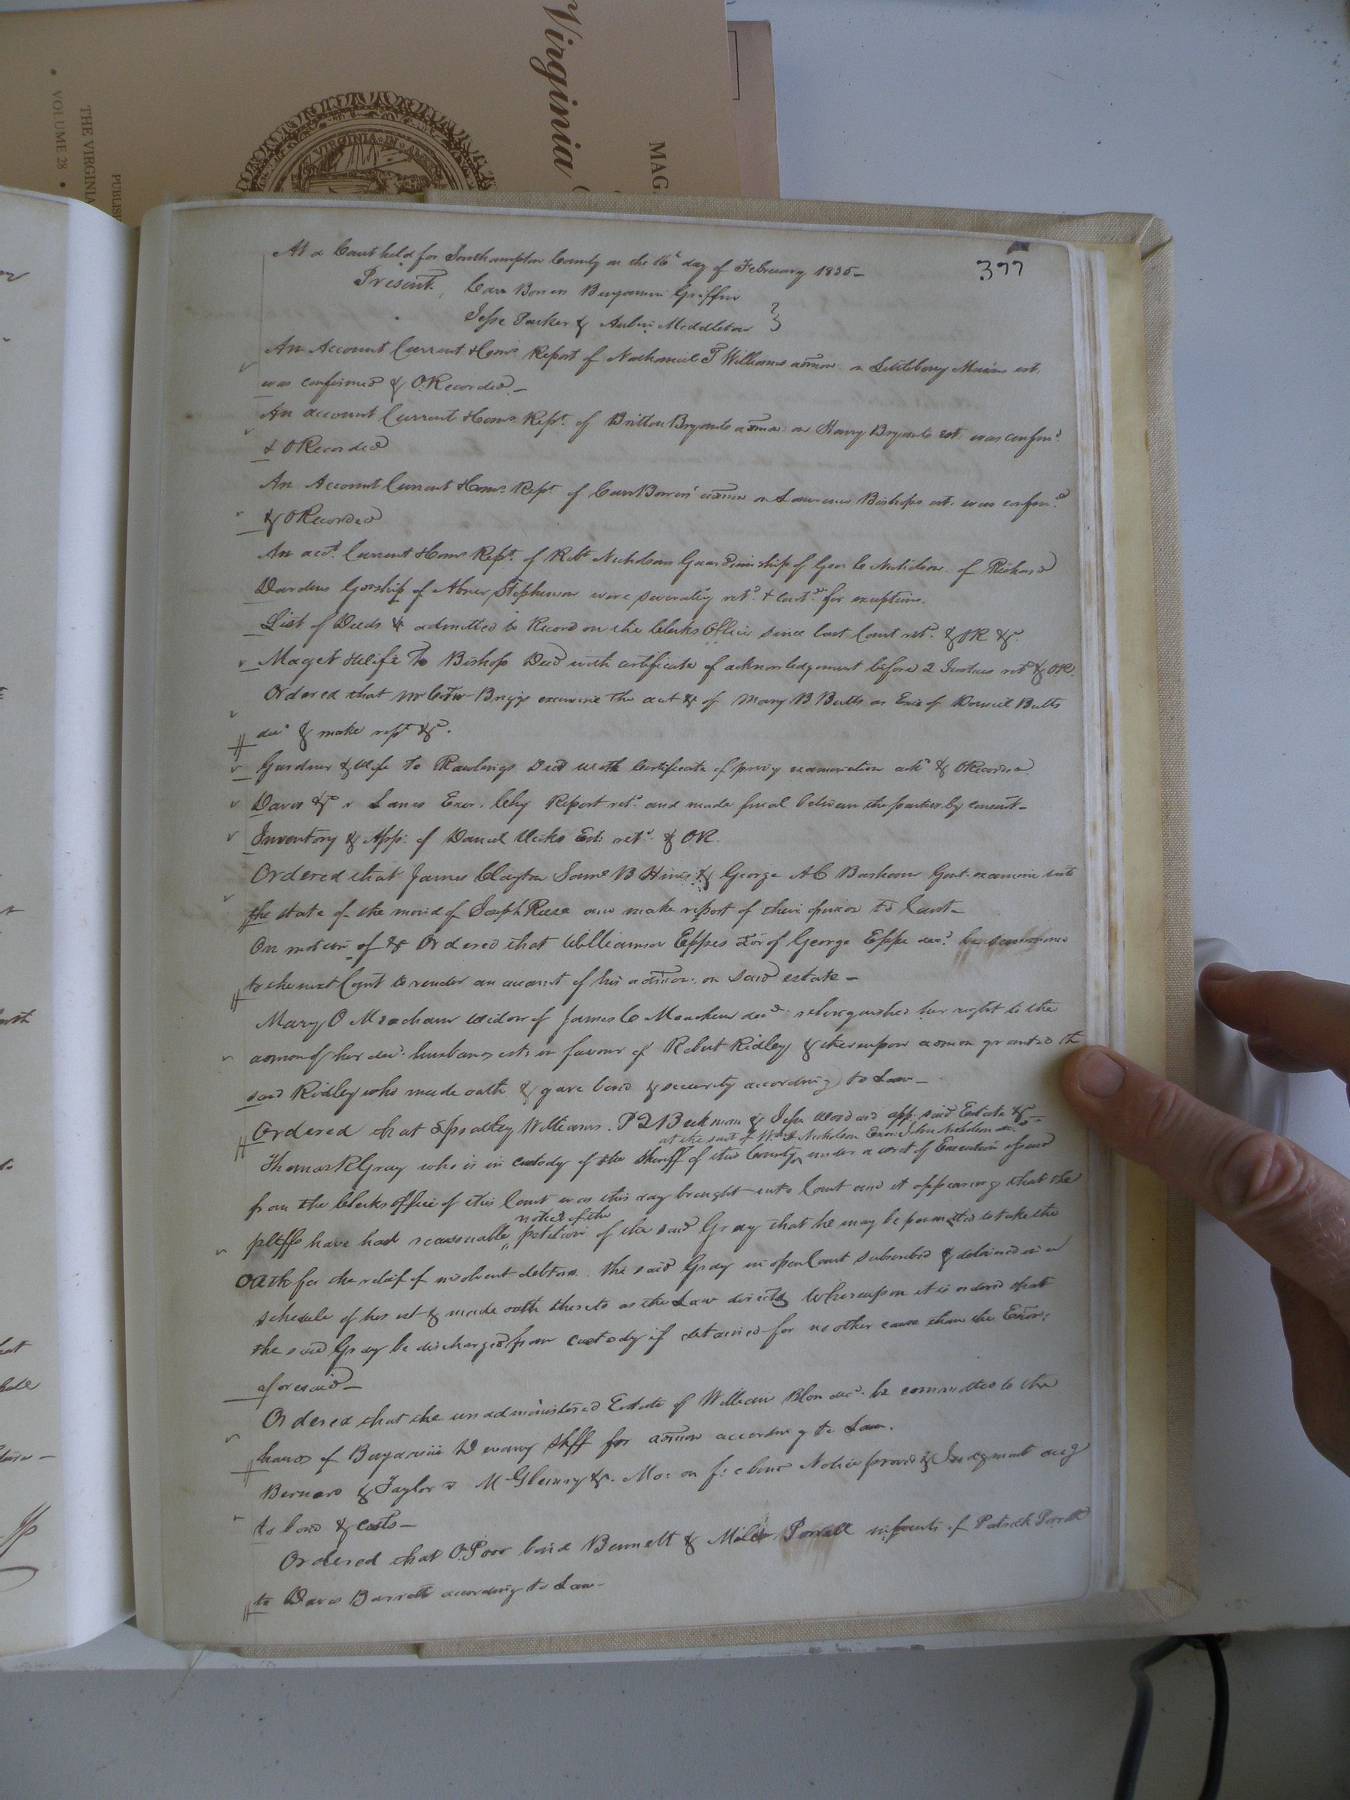 Virginia
MAG
THE VIRGINIA
VOLUME 28
PUBLIS
VIRGINIA
377
At a Court held for Southampton County on the 16th day of February 1835
Present Carr Bowers Benjamin Griffin
Jesse Parker & Middleton
An Account Current & Coms Report of Nathaniel T Williams admor on est.
was confirmed & ORecorded
An account Current & Coms Rept. of Britton Bryants admor on Harry Bryants est. was confmd
& ORecorded
An Account Current & Coms Rept of Carr Bowers admor on Lawrence Bishops est. was confmd
& ORecorded
An acct. Current & Coms Rept. of Robt Nicholson Guardianship of Geo of Richard
Dardens Gdrship of Abner Stephenson were severally retd. & contd for exceptions.
List of Deeds & admitted to Record in the Clerks Office since last Court retd. & OR &c
Maget & Wife To Bishop Deed with certificate of acknowledgement before 2 Justices retd & OR.
Ordered that Briggs examine the act & of Mary B Butts as Exix of Daniel Butts
decd & make rept &c.
Gardner & Wife To Rawlings Deed with Certificate of privy examination ackd & ORecorded
Davis &c v Lanes Exor. Chy Report retd. and made final between the parties by consent
Inventory & Appt. of Daniel Est. retd. & OR.
Ordered that James Clayton Saml B Hines & George A C Barham Gent. examine into
the state of the mind of Joseph Reese and make report of their opinion to Court
On motion of & Ordered that Williamson Eppes Exor of George Eppes decd. be summoned
to the next Court to render an account of his admon. on said estate
Mary O Meacham widow of James C Meacham decd relinquished her right to the
admon of her decd. husbands est. in favour of Robert Ridley & thereupon admon granted th
said Ridley who made oath & gave bond & security according to Law
Ordered that Spratley Williams. Beckman & John app. said Estate &c
at the suit of Nicholson Exor. of Nicholson decd
Thomas R Gray who is in custody of the Sheriff of this County, under a writ of Execution issued
from the Clerks office of this Court was this day brought into Court and it appearing that the
notice of the
pltffs have had reasonable petition of the said Gray that he may be permitted to take the
oath for the relief of insolvent debtors. the said Gray in open Court subscribed & delivered in a
schedule of his est & made oath thereto as the Law directs Whereupon it is ordered that
the said Gray be discharged from custody if detained for no other cause than the Exon.
aforesaid
Ordered that the unadministered Estate of William Blow decd. be committed to the
hands of Benjamin Devany Shff for admon according to Law.
Bernard & Taylor v &c. Mo: on f: c bond Notice proved & Judgment accg
to bond & costs
Ordered that O. Poor bind Bennett & Porrell infants of Porrell
to Davis Barrett according to Law